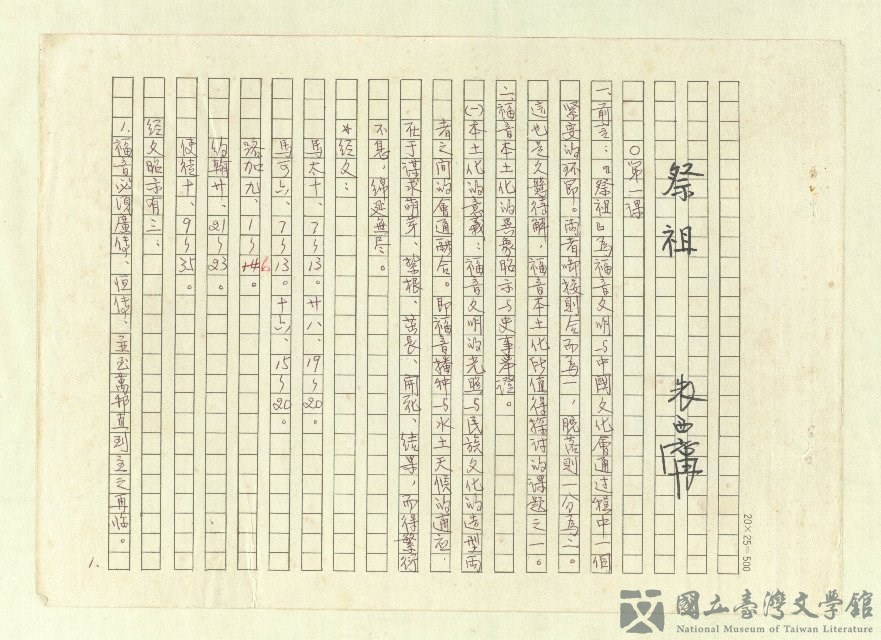 祭祖
○第一課
一、前言：『祭祖』為福音文明与中國文化會通过程中一個
緊要的环節。両者啣接則合而為一，脱落則一分為二。
這也是久懸待解，福音本土化所值得探討的課題之一。
二、福音本土化的異象昭示与史事舉證。
(一)本土化的意義：福音文明的光照与民族文化的造型両
者之间的會通融合。即福音播种与水土天候的適应，
在于謀求萌芽、紮根、茁長、開花、结果，而得繁衍
不息，綿延無尽。
*经文：
馬太十、7～13。廿八、19～20。
馬可六、7～13。十六、15～20。
路加九、1～6。
约翰廿、21～23。
使徒十、9～35。
经文昭示有三、
1.福音必須廣传、恒传、至于萬邦直到主之再临。
1.
20×25=500
國立臺灣文學館
National Museum of Taiwan Literature